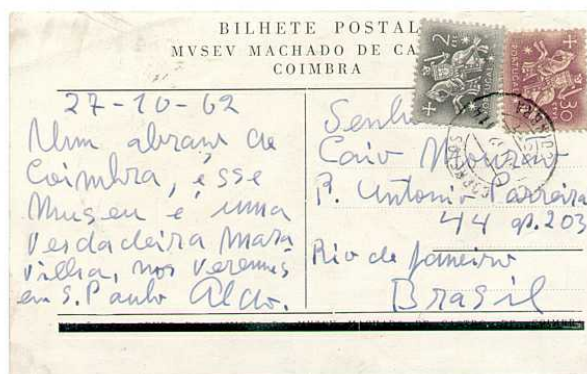 BILHETE POSTAL
MVSEV MACHADO DE CA
COIMBRA
27-10-62
Um abraço de
Coimbra, ésse
Museu é uma
verdadeira mara
vilha, nos veremos
em S. Paulo Aldo.
Caio
R. Antonio Parreira
44 ap. 203
Rio de Janeiro
Brasil
2